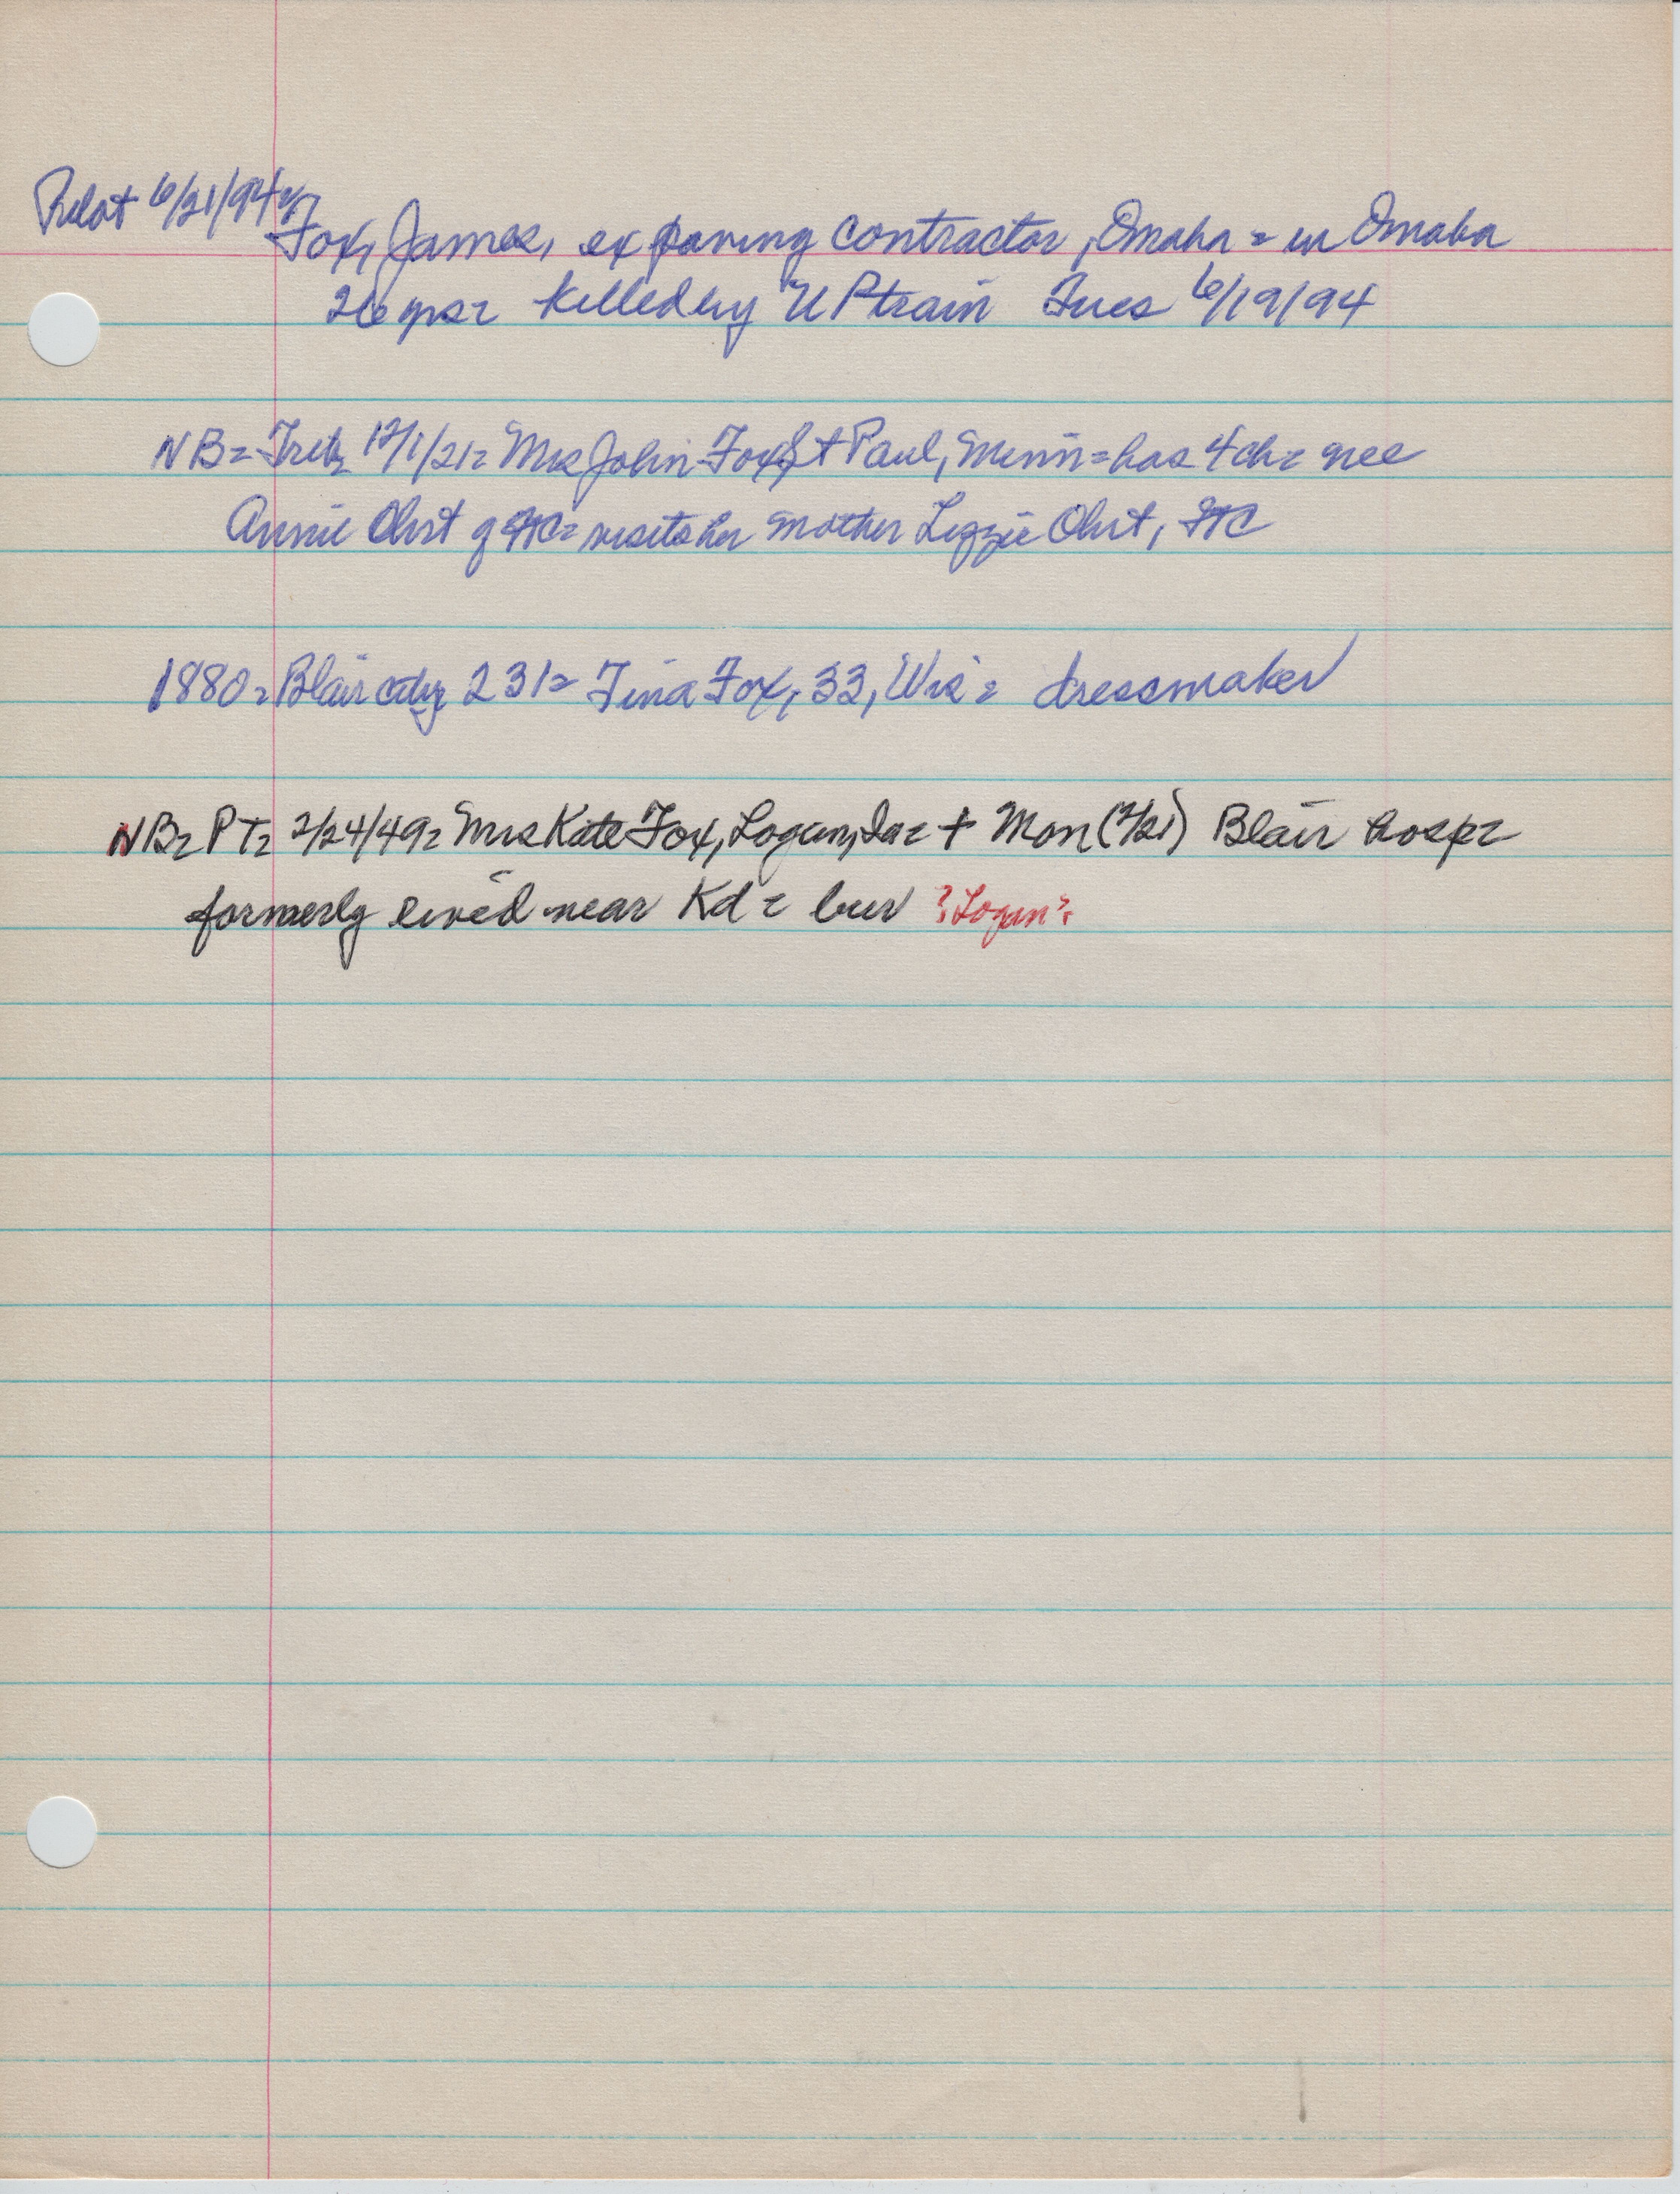 Pilot 6/21/94=
Fox, James, ex paving contractor, Omaha = in Omaha
26 yrs = killed by UP train Tues 6/19/94
NB = Trib = 12/1/21 = Mrs John Fox, St Paul, Minn = has 4 ch = nee
Annie Ohrt of FtC = visits her mother Lizzie Ohrt, FtC
1880 = Blair city 231 = Tina Fox, 33, Wis = dressmaker
NB = PT = 2/24/49 = Mrs Kate Fox, Logan, Ia = + Mon (2/21) Blair hosp =
formerly lived near Kd = bur ?Logan?